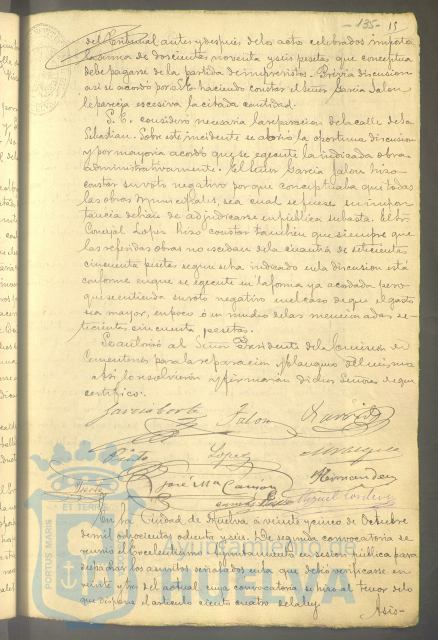 -135- 15
del Tribunal antes y despues de los actos celebrados importa
la suma de doscientas noventa y seis pesetas que conceptua
debe pagarse de la partida de imprevistos. Previa discusion
asi se acordó por Sto haciendo constar el Señor Garcia Jalon
le parecia escesiva la citada cantidad.
S. E. consideró necesaria la reparacion de la calle de San
Sebastian. Sobre este incidente se abrió la oportuna discusion
y por mayoria acordó que se egecute la indicada obra
administrativamente. El Señor Garcia Jalon hizo
constar su voto negativo porque conceptuaba que todas
las obras Municipales, sea cual se fuese su impor-
tancia debian de adjudicarse en publica subasta. El Sr.
Concejal Lopez hizo constar tambien que siempre que
las referidas obras no escedan de la cuantia de setecientas
cincuenta pesetas segun se ha indicado en la discusion está
conforme en que se egecute en la forma ya acordada pero
que se entienda su voto negativo en el caso de que el gasto
sea mayor, en poco ó en mucho de las mencionadas se-
tecientas cincuenta pesetas.
Se autorizó al Señor Presidente de la Comision de
Cementerios para la reparacion y blanqueo del mismo
Asi lo resolvieron y firmarán dichos Señores de que
certifico:
Garcia Cortes Jalon
Lopez Marquez
José Ma Carrion Hernandez
Miguel Cordero
En la Ciudad de Huelva á veinte y cinco de Octubre
de mil ochocientos ochenta y seis: De segunda convocatoria se
reunió el Excelentisimo Ayuntamiento en sesion pública para
despachar los asuntos señalados en la que debió verificarse en
veinte y tres del actual cuya convocatoria se hizo al tenor de lo
que dispone el articulo ciento cuatro de la ley
Asis-
Ayuntamiento de
HUELVA
PORTUS MARIS
ET TERRE